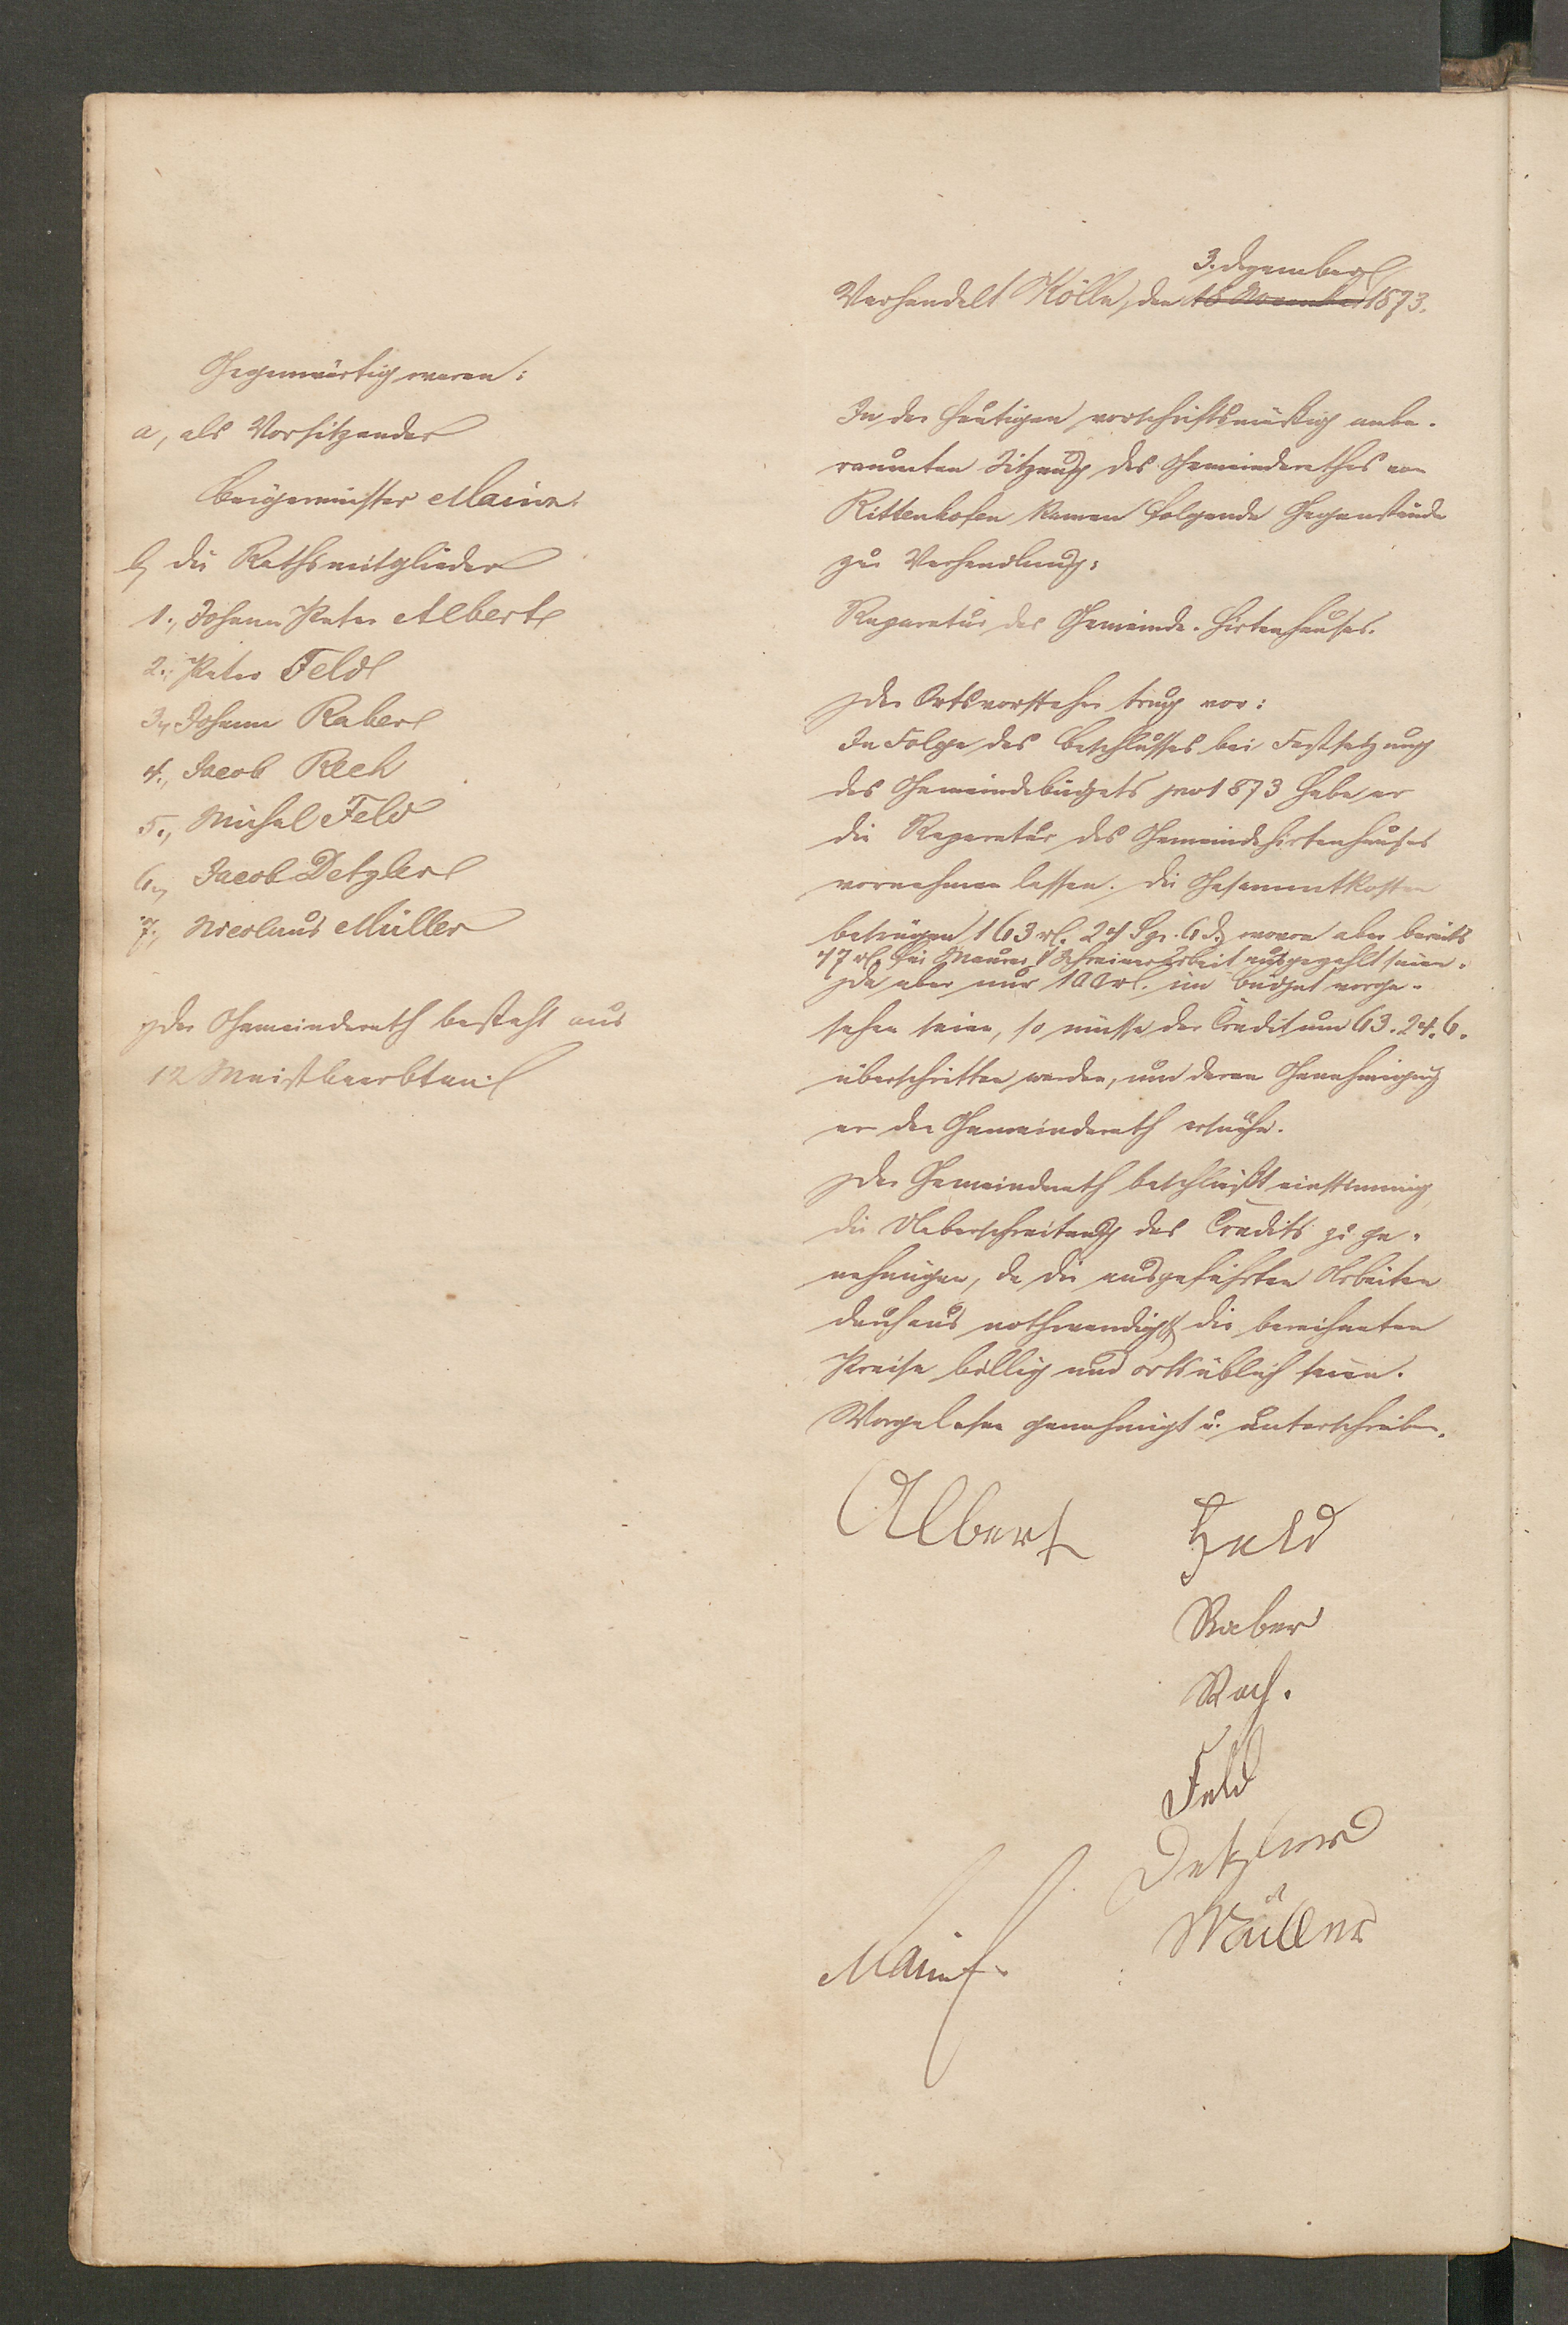 Gegenwärtig waren:
a, als Vorsitzender
Bürgermeister Mainz.
b, die Rathsmitglieder
1., Johann Peter Albert
2., Peter Feld
3., Johann Raber
4., Jacob Rech
5., Michel Feld
6., Jacob Detzler
7., Nicolaus Müller
Der Gemeinderath besteht aus
12 Meistbeerbten.
3. Dezember
Verhandelt Kölln, den 18 November 1873.
In der heutigen vorschriftsmäßig anbe-
raumten Sitzung des Gemeinderathes von
Rittenhofen kamen folgende Gegenstände
zur Verhandlung:
Reparatur des Gemeinde-Hirtenhauses.
Der Ortsvorsteher trug vor:
In Folge des Beschlusses bei Festsetzung
des Gemeindebudgets pro 1873 habe er
die Reparatur des Gemeindehirtenhauses
vornehmen lassen. Die Gesammtkosten
betrügen 163 rl. 24 Sgr. 6 d, wovon aber bereits
47 rl. für Maurer & Schreiner Arbeit ausgezahlt seien.
Da aber nur 100 rl. im Budget vorge-
sehen seien, so müsse der Credit um 63. 24. 6.
überschritten werden, um deren Genehmigung
er den Gemeinderath ersuche.
Der Gemeinderath beschließt einstimmig
die Ueberschreitung des Credits zu ge-
nehmigen, da die ausgeführten Arbeiten
durchaus nothwendig & die berechneten
Preise billig und ortsüblich seien.
Vorgelesen genehmigt u. unterschrieben.
Albert Feld
Raber
Rech.
Feld
Detzler
Müller
Mainz